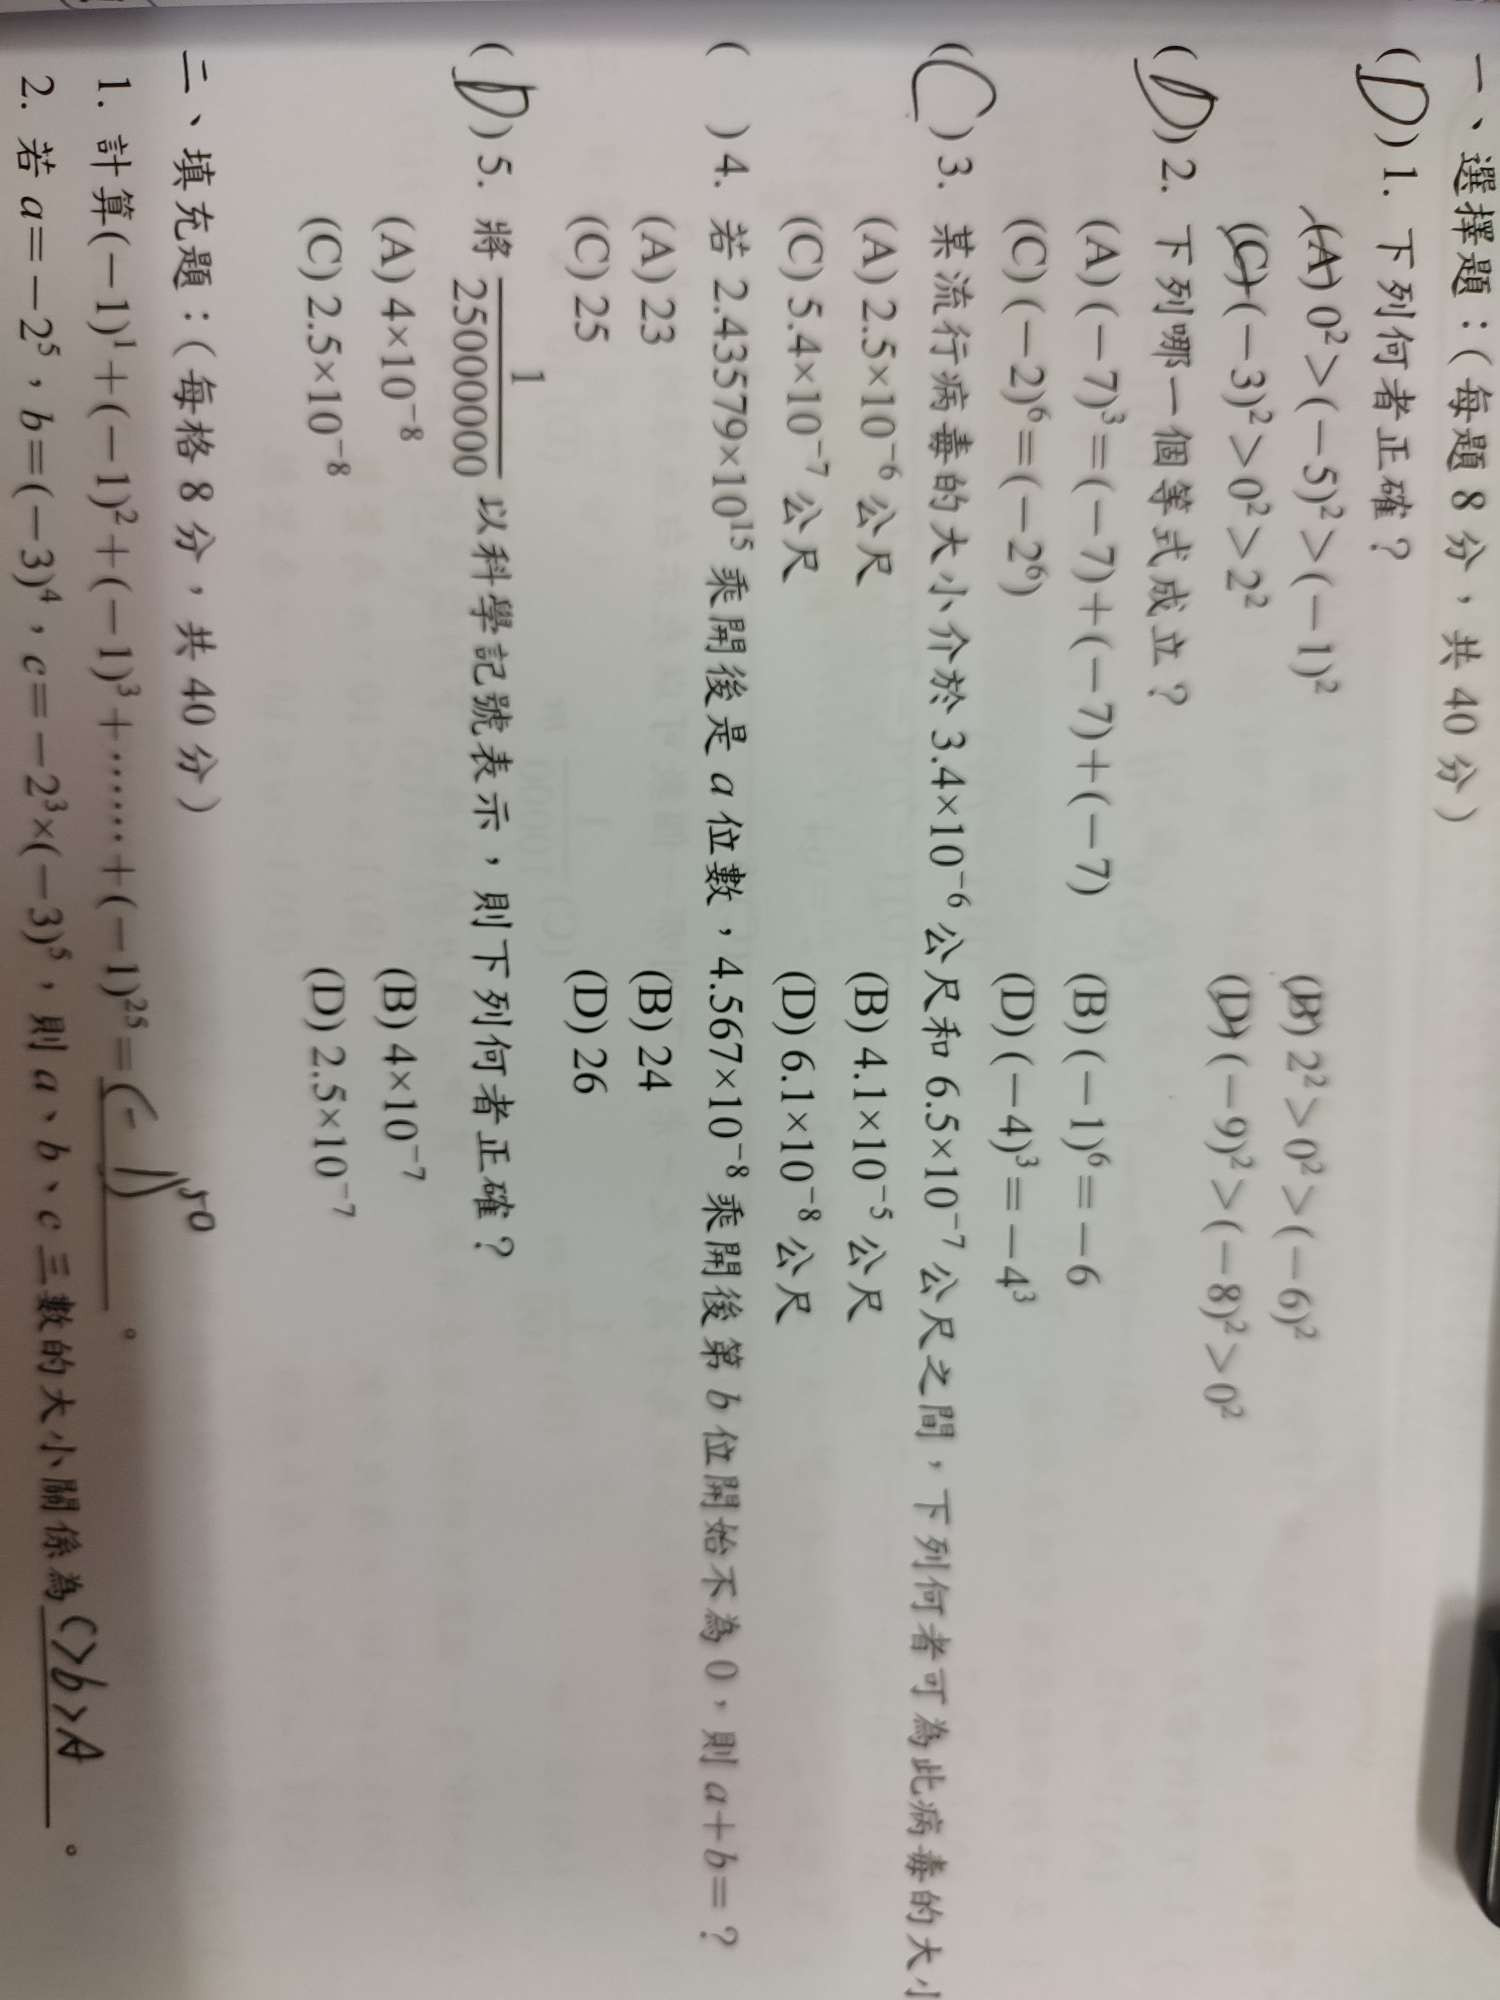 一、選擇題：(每題 8 分，共 40 分)
(D) 1. 下列何者正確？
(A) 0²＞(－5)²＞(－1)² (B) 2²＞0²＞(－6)²
(C) (－3)²＞0²＞2² (D) (－9)²＞(－8)²＞0²
(D) 2. 下列哪一個等式成立？
(A) (－7)³＝(－7)＋(－7)＋(－7) (B) (－1)⁶＝－6
(C) (－2)⁶＝(－2⁶) (D) (－4)³＝－4³
(C) 3. 某流行病毒的大小介於 3.4×10⁻⁶ 公尺和 6.5×10⁻⁷ 公尺之間，下列何者可為此病毒的大小
(A) 2.5×10⁻⁶ 公尺 (B) 4.1×10⁻⁵ 公尺
(C) 5.4×10⁻⁷ 公尺 (D) 6.1×10⁻⁸ 公尺
( ) 4. 若 2.43579×10¹⁵ 乘開後是 a 位數，4.567×10⁻⁸ 乘開後第 b 位開始不為 0，則 a＋b＝？
(A) 23 (B) 24
(C) 25 (D) 26
(D) 5. 將 1/25000000 以科學記號表示，則下列何者正確？
(A) 4×10⁻⁸ (B) 4×10⁻⁷
(C) 2.5×10⁻⁸ (D) 2.5×10⁻⁷
二、填充題：(每格 8 分，共 40 分)
1. 計算(－1)¹＋(－1)²＋(－1)³＋……＋(－1)²⁵＝(-1)⁵⁰。
2. 若 a＝－2⁵，b＝(－3)⁴，c＝－2³×(－3)⁵，則 a、b、c 三數的大小關係為 C>b>A。